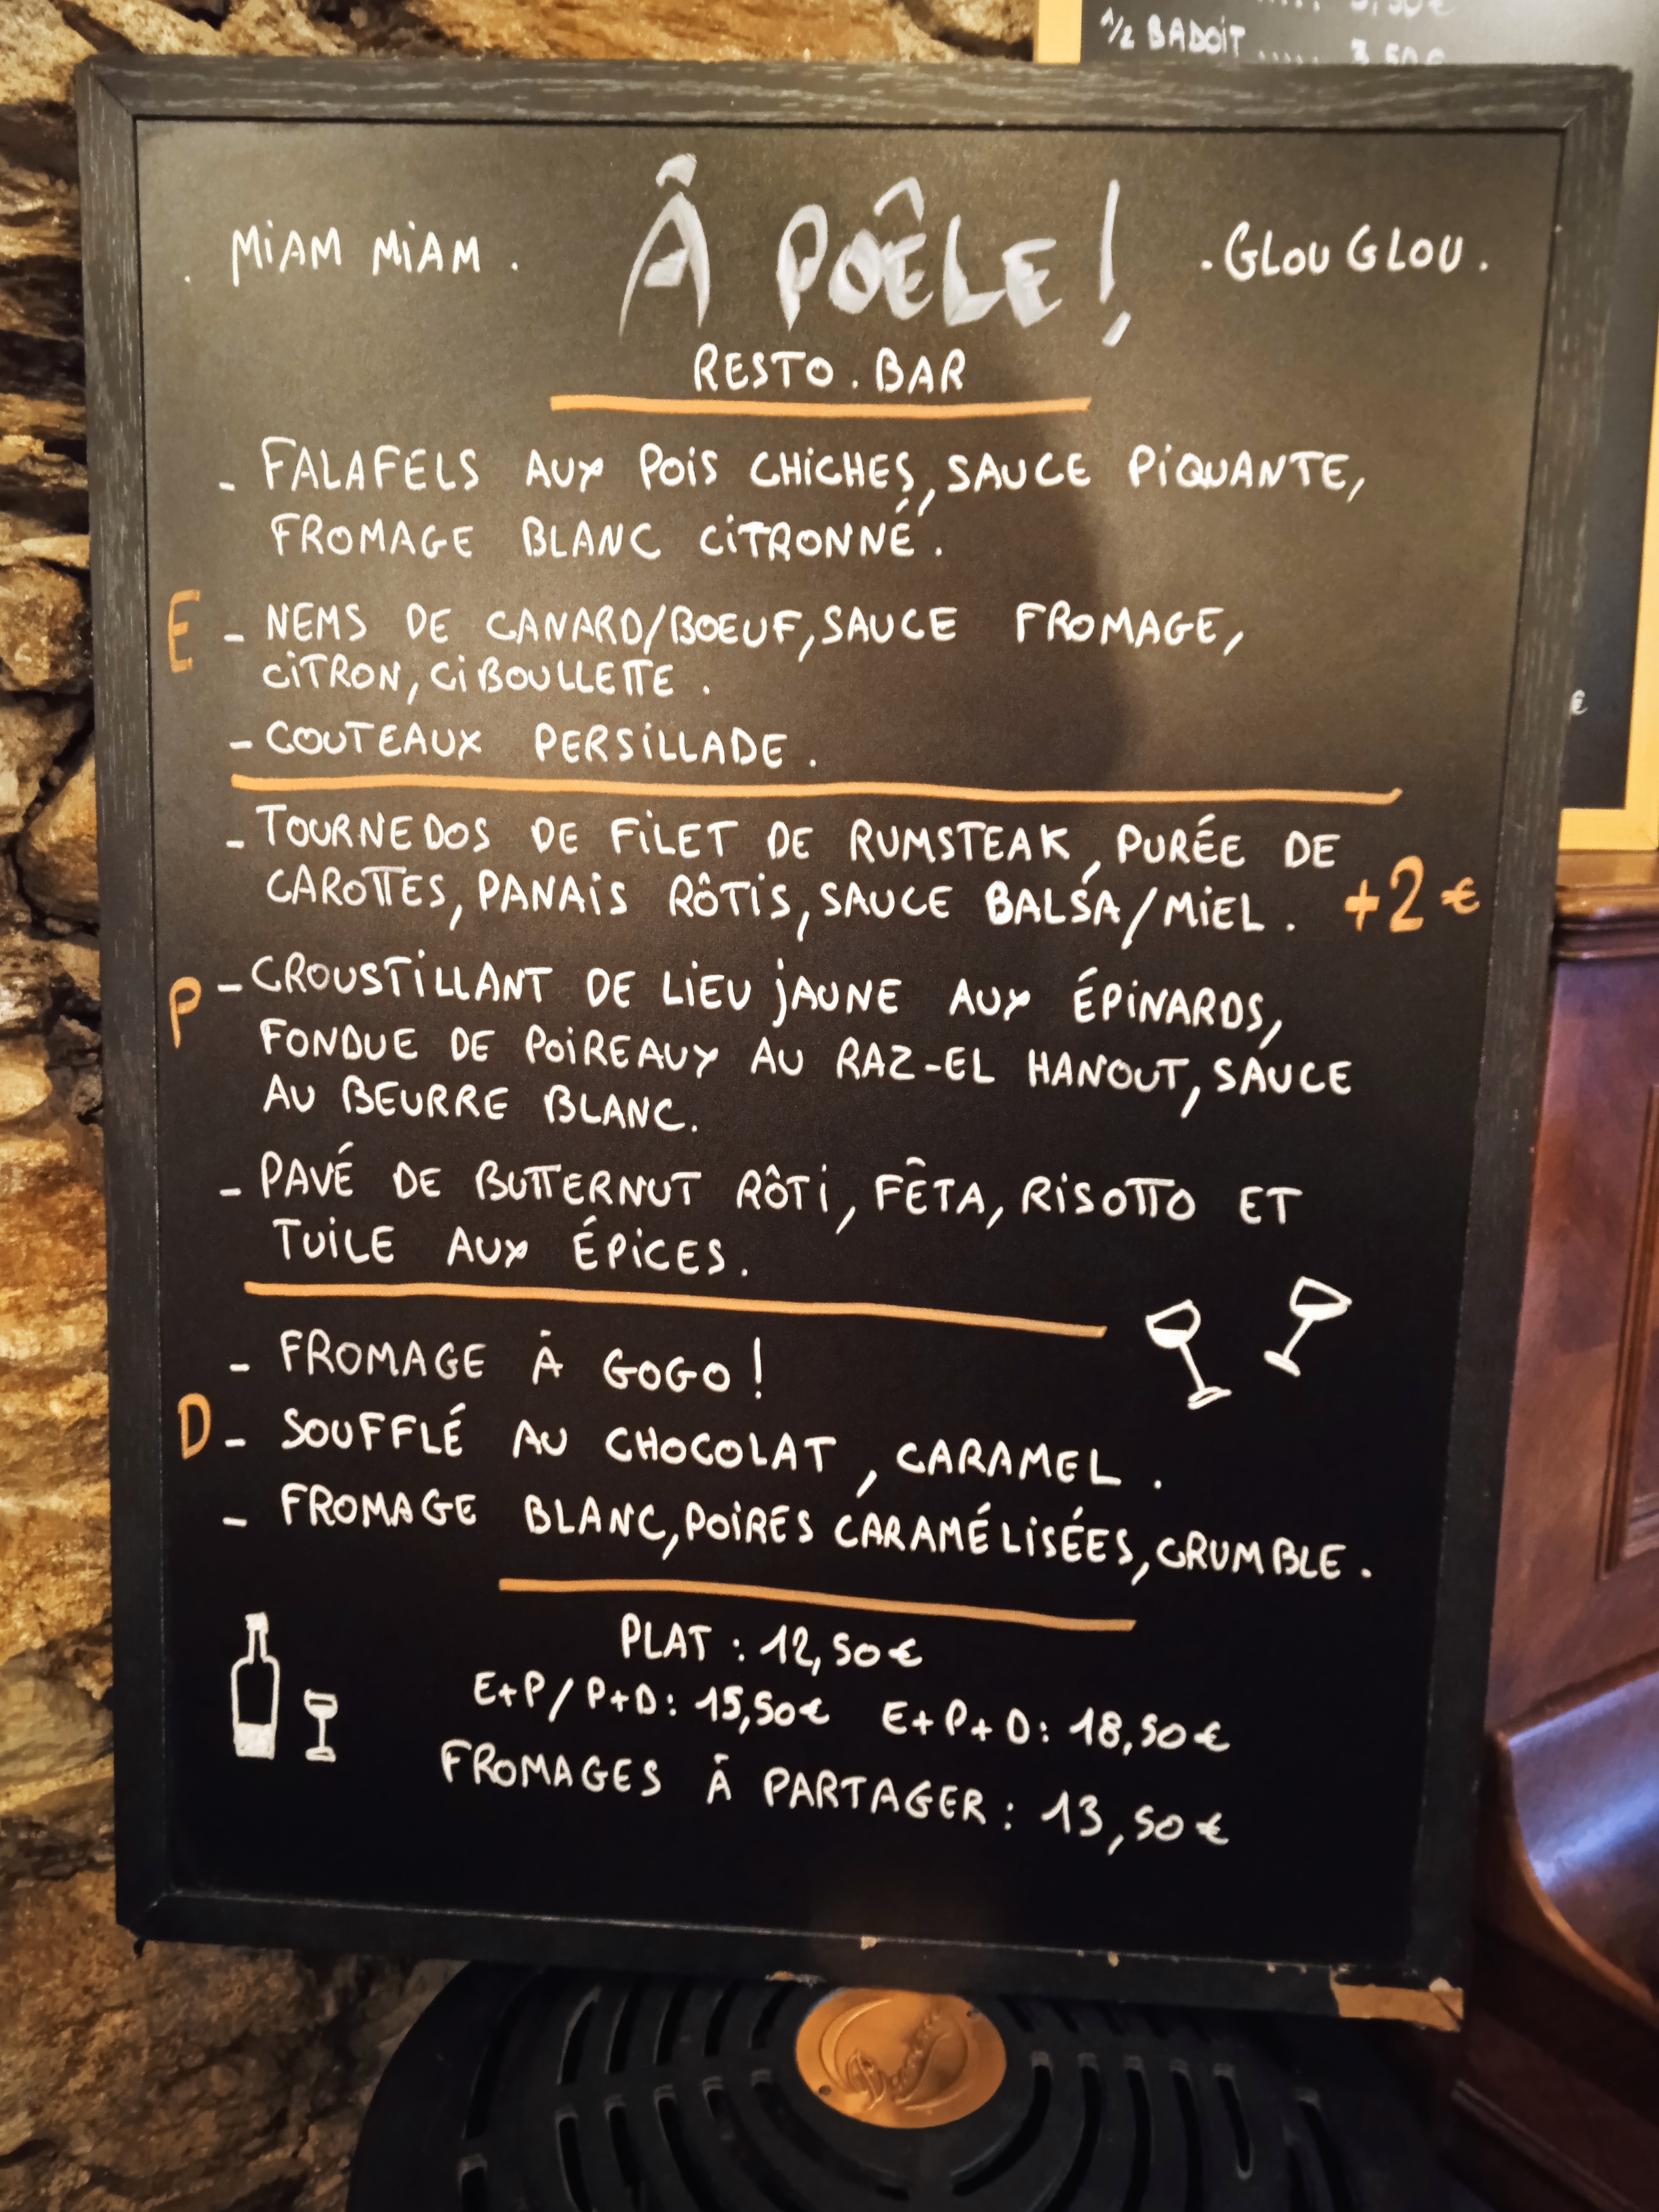 1/2 BADOIT ..... 3,50€
. MiAM MiAM .
À POÊLE !
- GLOU GLOU .
RESTO . BAR
- FALAFELS AUX POiS CHiCHES, SAUCE PiQUANTE,
FROMAGE BLANC CiTRONNÉ .
E
- NEMS DE CANARD/BOEUF, SAUCE FROMAGE,
CiTRON, CiBOULLETTE .
- COUTEAUX PERSiLLADE .
- TOURNEDOS DE FiLET DE RUMSTEAK, PURÉE DE
CAROTTES, PANAiS RÔTiS, SAUCE BALSA/MiEL . +2€
P
- CROUSTiLLANT DE LiEU jAUNE AUX ÉPiNARDS,
FONDUE DE POiREAUX AU RAZ-EL HANOUT, SAUCE
AU BEURRE BLANC.
- PAVÉ DE BUTTERNUT RÔTi, FÊTA, RiSOTTO ET
TUiLE AUX ÉPiCES .
- FROMAGE À GOGO !
D
- SOUFFLÉ AU CHOCOLAT, CARAMEL .
- FROMAGE BLANC, POiRES CARAMÉLiSÉES, CRUMBLE .
PLAT : 12,50€
E+P / P+D : 15,50€ E+P+D : 18,50€
FROMAGES À PARTAGER : 13,50€